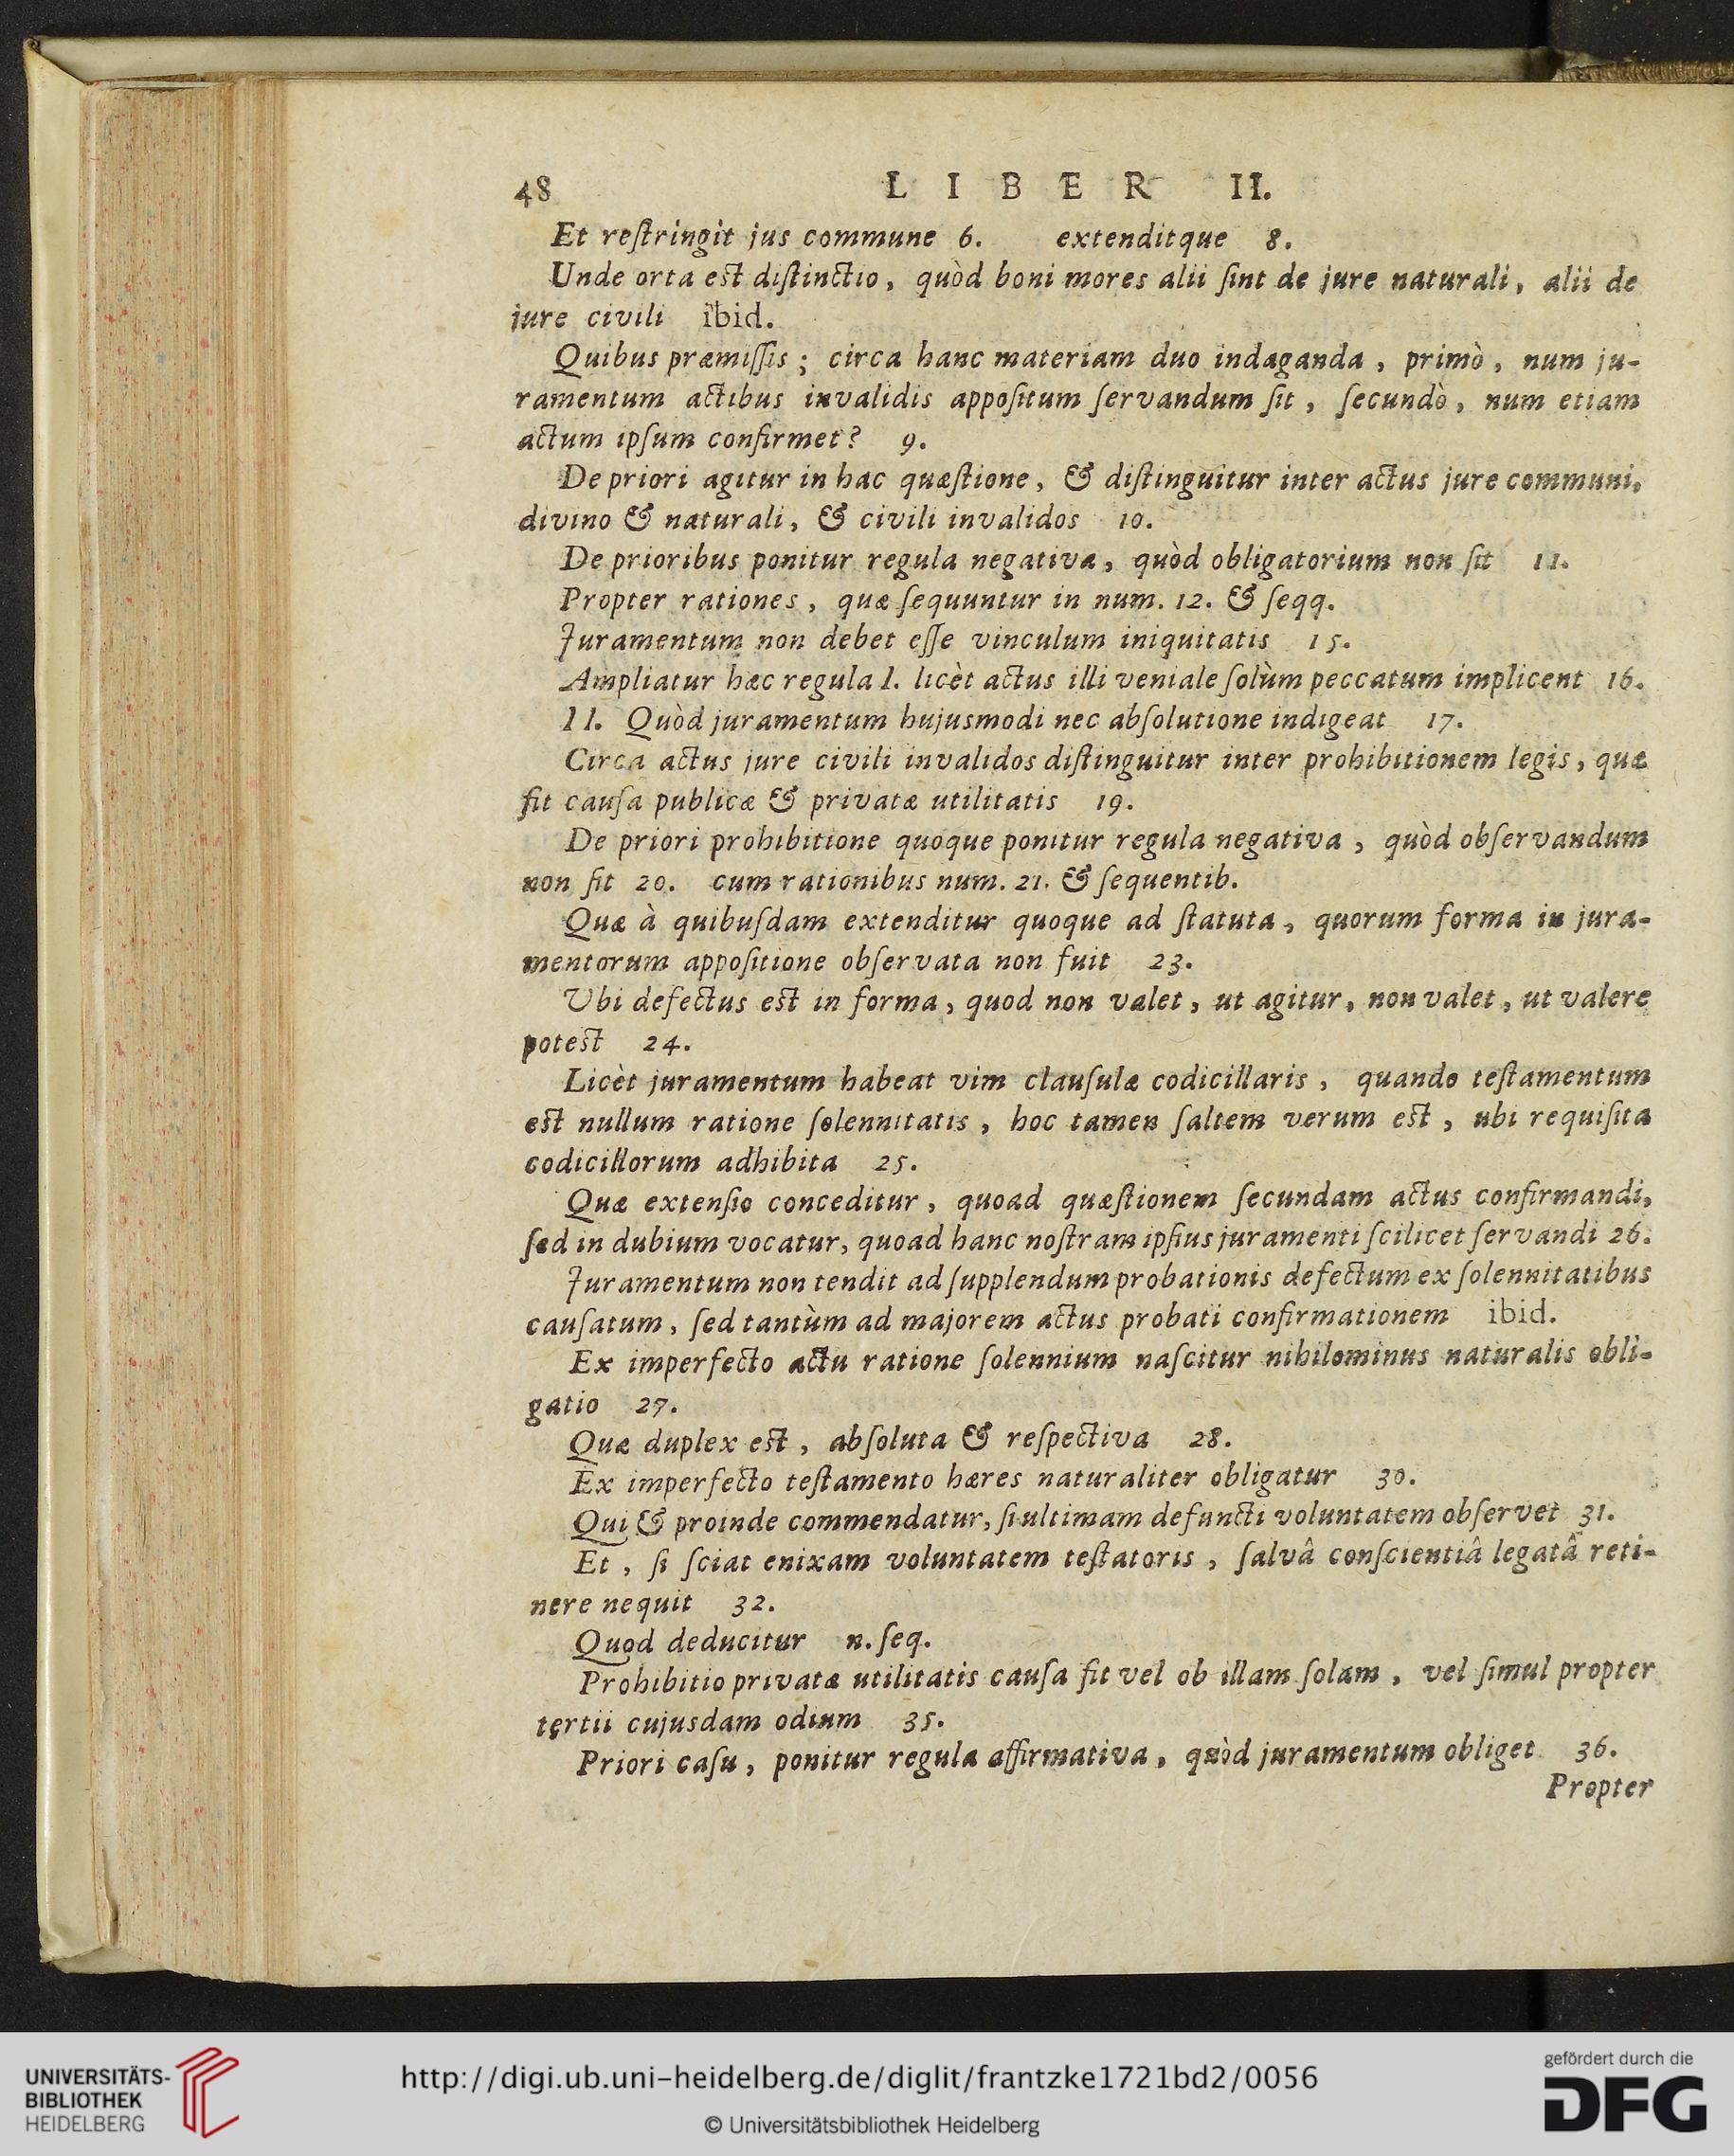 48 LIBER II.
Et reſtringit jus commune 6. extenditque 8.
Unde orta eſt diſtinctio, quòd boni mores alii ſint de jure naturali, alii de
jure civili ibid.
Quibus præmiſſis; circa hanc materiam duo indaganda, primò, num ju-
ramentum actibus invalidis appoſitum ſervandum ſit, ſecundò, num etiam
actum ipſum confirmet? 9.
De priori agitur in hac quæſtione, & diſtinguitur inter actus jure communi,
divino & naturali, & civili invalidos 10.
De prioribus ponitur regula negativa, quòd obligatorium non ſit 11.
Propter rationes, quæ ſequuntur in num. 12. & ſeqq.
Juramentum non debet eſſe vinculum iniquitatis 15.
Ampliatur hæc regula I. licèt actus illi veniale ſolùm peccatum implicent 16.
II. Quòd juramentum hujusmodi nec abſolutione indigeat 17.
Circa actus jure civili invalidos diſtinguitur inter prohibitionem legis, quæ
fit cauſa publicæ & privatæ utilitatis 19.
De priori prohibitione quoque ponitur regula negativa, quòd obſervandum
non ſit 20. cum rationibus num. 21. & ſequentib.
Quæ à quibuſdam extenditur quoque ad ſtatuta, quorum forma in jura-
mentorum appoſitione obſervata non fuit 23.
Ubi defectus eſt in forma, quod non valet, ut agitur, non valet, ut valere
poteſt 24.
Licèt juramentum habeat vim clauſulæ codicillaris, quando teſtamentum
eſt nullum ratione ſolennitatis, hoc tamen ſaltem verum eſt, ubi requiſita
codicillorum adhibita 25.
Quæ extenſio conceditur, quoad quæſtionem ſecundam actus confirmandi,
ſed in dubium vocatur, quoad hanc noſtram ipſius juramenti ſcilicet ſervandi 26.
Juramentum non tendit ad ſupplendum probationis defectum ex ſolennitatibus
cauſatum, ſed tantùm ad majorem actus probati confirmationem ibid.
Ex imperfecto actu ratione ſolennium naſcitur nihilominus naturalis obli-
gatio 27.
Quæ duplex eſt, abſoluta & reſpectiva 28.
Ex imperfecto teſtamento hæres naturaliter obligatur 30.
Qui & proinde commendatur, ſi ultimam defuncti voluntatem obſervet 31.
Et, ſi ſciat enixam voluntatem teſtatoris, ſalvâ conſcientiâ legatâ reti-
nere nequit 32.
Quod deducitur n. ſeq.
Prohibitio privatæ utilitatis cauſa fit vel ob illam ſolam, vel ſimul propter
tertii cujusdam odium 35.
Priori caſu, ponitur regula affirmativa, quòd juramentum obliget 36.
Propter
UNIVERSITÄTS-
BIBLIOTHEK
HEIDELBERG
http://digi.ub.uni-heidelberg.de/diglit/frantzke1721bd2/0056
© Universitätsbibliothek Heidelberg
gefördert durch die
DFG